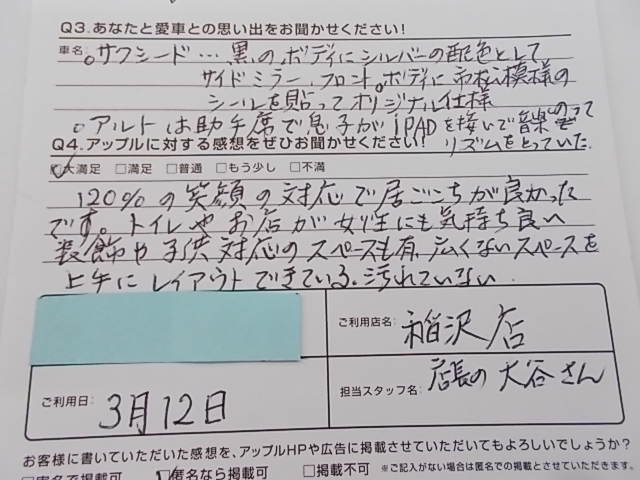 Q3.あなたと愛車との思い出をお聞かせください!
車名。サクシード…黒のボディにシルバーの配色として
サイドミラー、フロント。ボディに市松模様の
シールを貼ってオリジナル仕様
。アルトは助手席で息子がiPADを接いで音楽にのって
リズムをとっていた.
Q4.アップルに対する感想をぜひお聞かせください!
☑大満足 □満足 □普通 □もう少し □不満
120%の笑顔の対応で居ごこちが良かった
です。トイレやお店が女性にも気持ち良い
装飾や子供対応のスペースも有、広くないスペースを
上手にレイアウトできている.汚れていない.
ご利用店名: 稲沢店
ご利用日: 3月12日
担当スタッフ名: 店長の大谷さん
お客様に書いていただいた感想を、アップルHPや広告に掲載させていただいてもよろしいでしょうか?
□実名で掲載可 ☑匿名なら掲載可 □掲載不可 ※ご記入がない場合は匿名での掲載とさせていただきます。